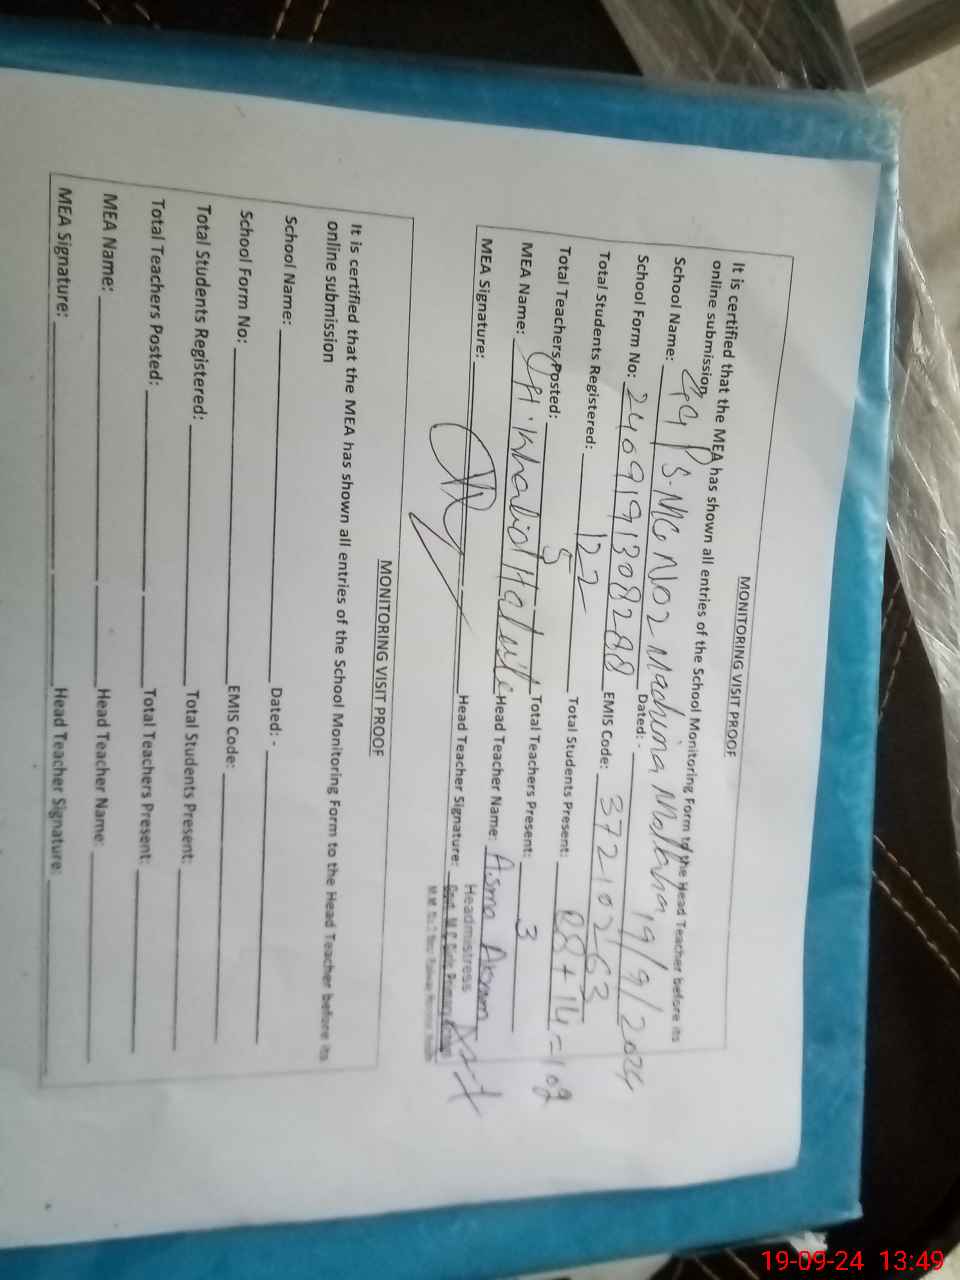 MONITORING VISIT PROOF
It is certified that the MEA has shown all entries of the School Monitoring Form to the Head Teacher before its
online submission
School Name: GGPS. MC, No 2 Madina Mohalla
School Form No: 2409191308288 Dated: - 19/9/2024
Total Students Registered: 122 EMIS Code: 37210263
Total Teachers Posted: 5 Total Students Present: 14 =
MEA Name: Khalid Total Teachers Present: 3
MEA Signature: Head Teacher Name: Asma Akram
Head Teacher Signature:
Headmistress
Govt. M.C Girls Primary School
MONITORING VISIT PROOF
It is certified that the MEA has shown all entries of the School Monitoring Form to the Head Teacher before its
online submission
School Name: Dated: -
School Form No: EMIS Code:
Total Students Registered: Total Students Present:
Total Teachers Posted: Total Teachers Present:
MEA Name: Head Teacher Name:
MEA Signature: Head Teacher Signature:
19-09-24 13:49